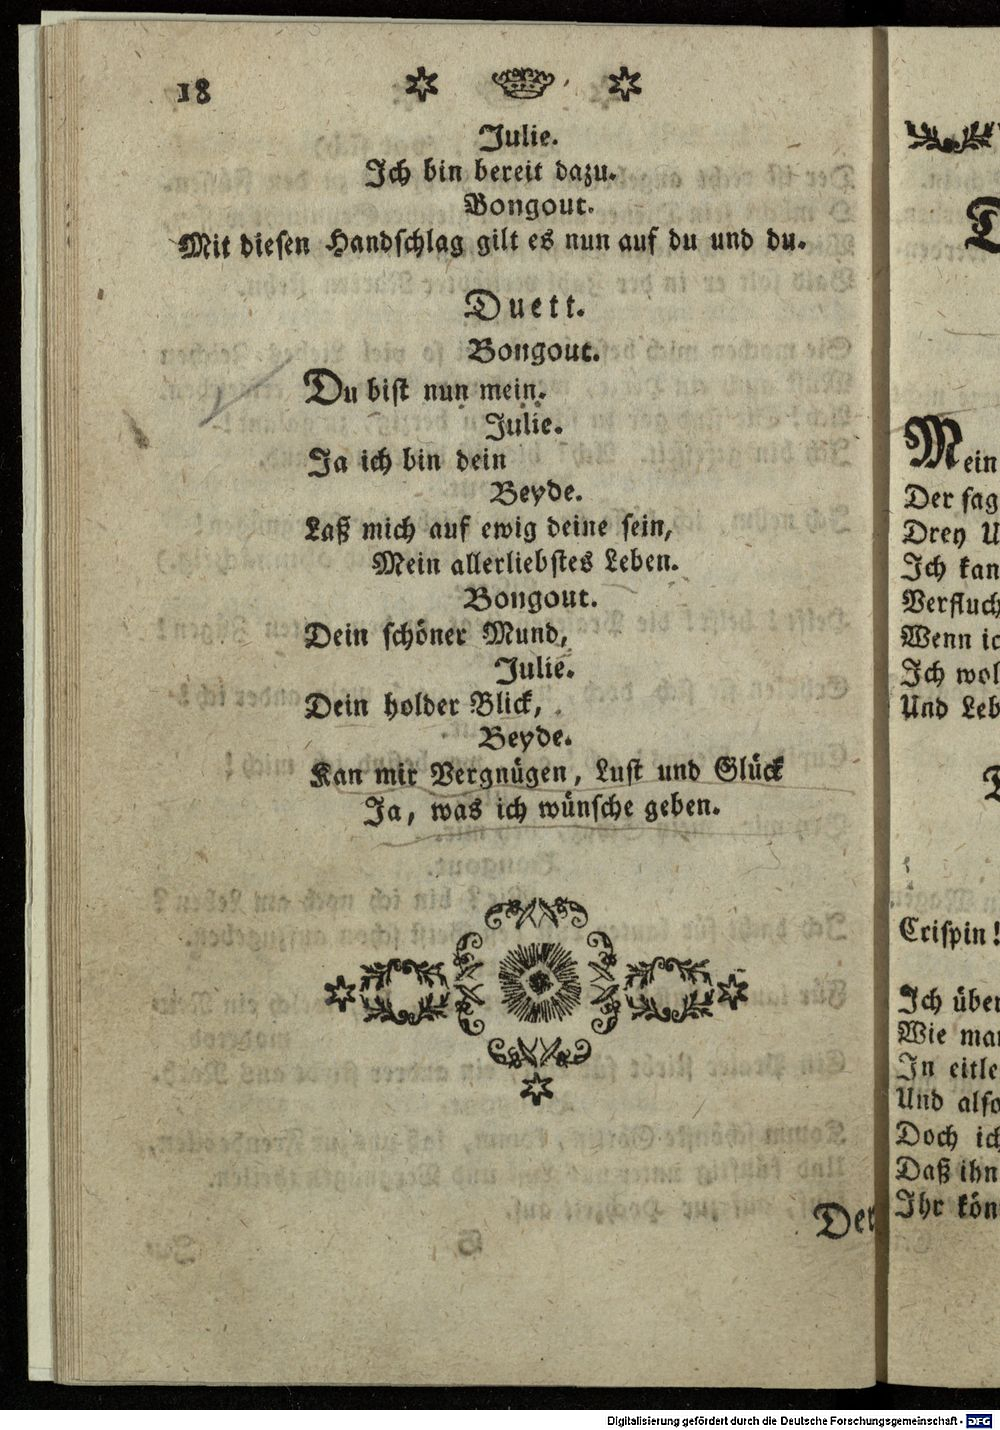 18
Julie.
Ich bin bereit dazu.
Bongout.
Mit diesen Handschlag gilt es nun auf du und du.
Duett.
Bongout.
Du bist nun mein.
Julie.
Ja ich bin dein
Beyde.
Laß mich auf ewig deine sein,
Mein allerliebstes Leben.
Bongout.
Dein schöner Mund,
Julie.
Dein holder Blick,
Beyde.
Kan mir Vergnügen, Lust und Glück
Ja, was ich wünsche geben.
Der
Mein
Der sag
Drey
Ich kan
Verfluch
Wenn ic
Ich wol
Und Leb
Crispin!
Ich über
Wie ma
In eitle
Und also
Doch ich
Daß ihn
Ihr kön
Digitalisierung gefördert durch die Deutsche Forschungsgemeinschaft - DFG